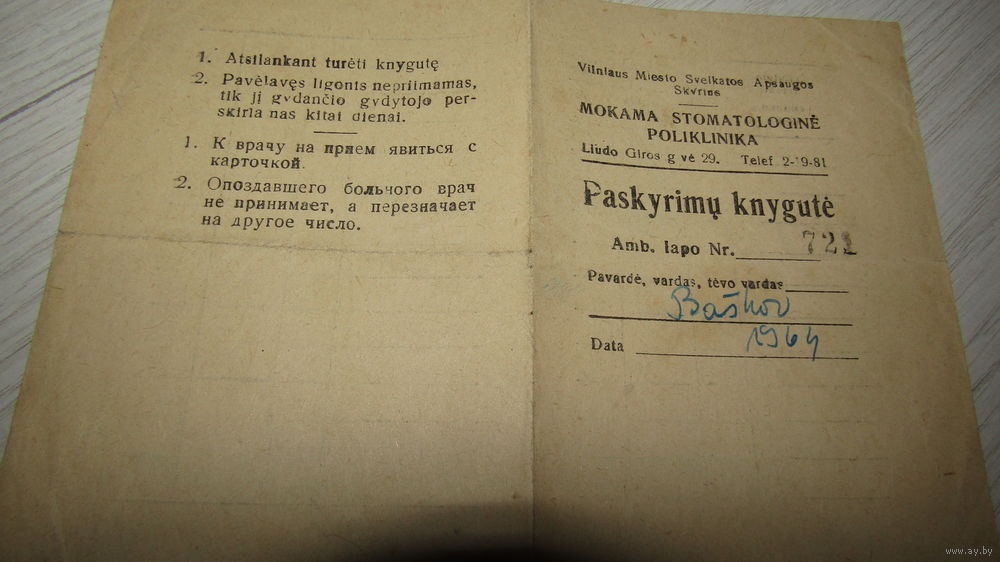 1. Atsilankant turėti knygutę
2. Pavėlavęs ligonis nepriimamas,
tik jį gydančio gydytojo per-
skiria nas kitai dienai.
1. К врачу на прием явиться с
карточкой.
2. Опоздавшего больчого врач
не принимает, а перезначает
на другое число.
Vilniaus Miesto Sveikatos Apsaugos
Skyrius
MOKAMA STOMATOLOGINĖ
POLIKLINIKA
Liudo Giros g vė 29. Telef 2-19-81
Paskyrimų knygutė
Amb. lapo Nr. 721
Pavardė, vardas, tėvo vardas
Baškov
Data 1964
www.ay.by